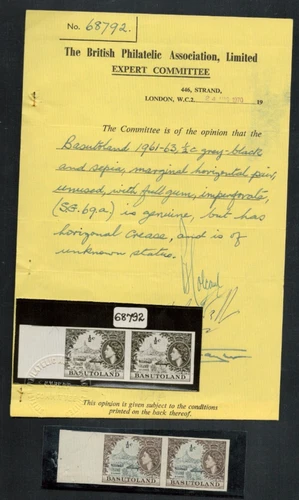 No. 68792.
The British Philatelic Association, Limited
EXPERT COMMITTEE
446, STRAND,
LONDON, W.C.2. 1970 19
The Committee is of the opinion that the
Basutoland 1961-63 ½c grey-black
and sepia, marginal horizontal pair,
unused, with full gum, imperforate,
(SG.69a) is genuine, but has
horizontal crease, and is of
unknown status.
68792
½c ½c
BASUTOLAND BASUTOLAND
This opinion is given subject to the conditions
printed on the back thereof.
½c ½c
BASUTOLAND BASUTOLAND